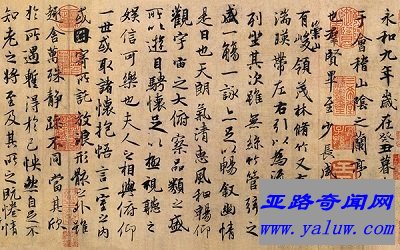 永和九年歲在癸丑暮
于會稽山陰之蘭亭
也羣賢畢至少長咸
有崇山峻領茂林脩竹又有
湍暎帶左右引以為流
列坐其次雖無絲竹管弦之
盛一觴一詠亦足以暢敘幽情
是日也天朗氣清惠風和暢仰
觀宇宙之大俯察品類之盛
所以遊目騁懷足以極視聽之
娛信可樂也夫人之相與俯仰
一世或取諸懷抱悟言一室之內
或因寄所託放浪形骸之外雖
趣舍萬殊靜躁不同當其欣
於所遇暫得於己怏然自足不
知老之將至及其所之既惓情
亚路奇闻网
www.yaluw.com